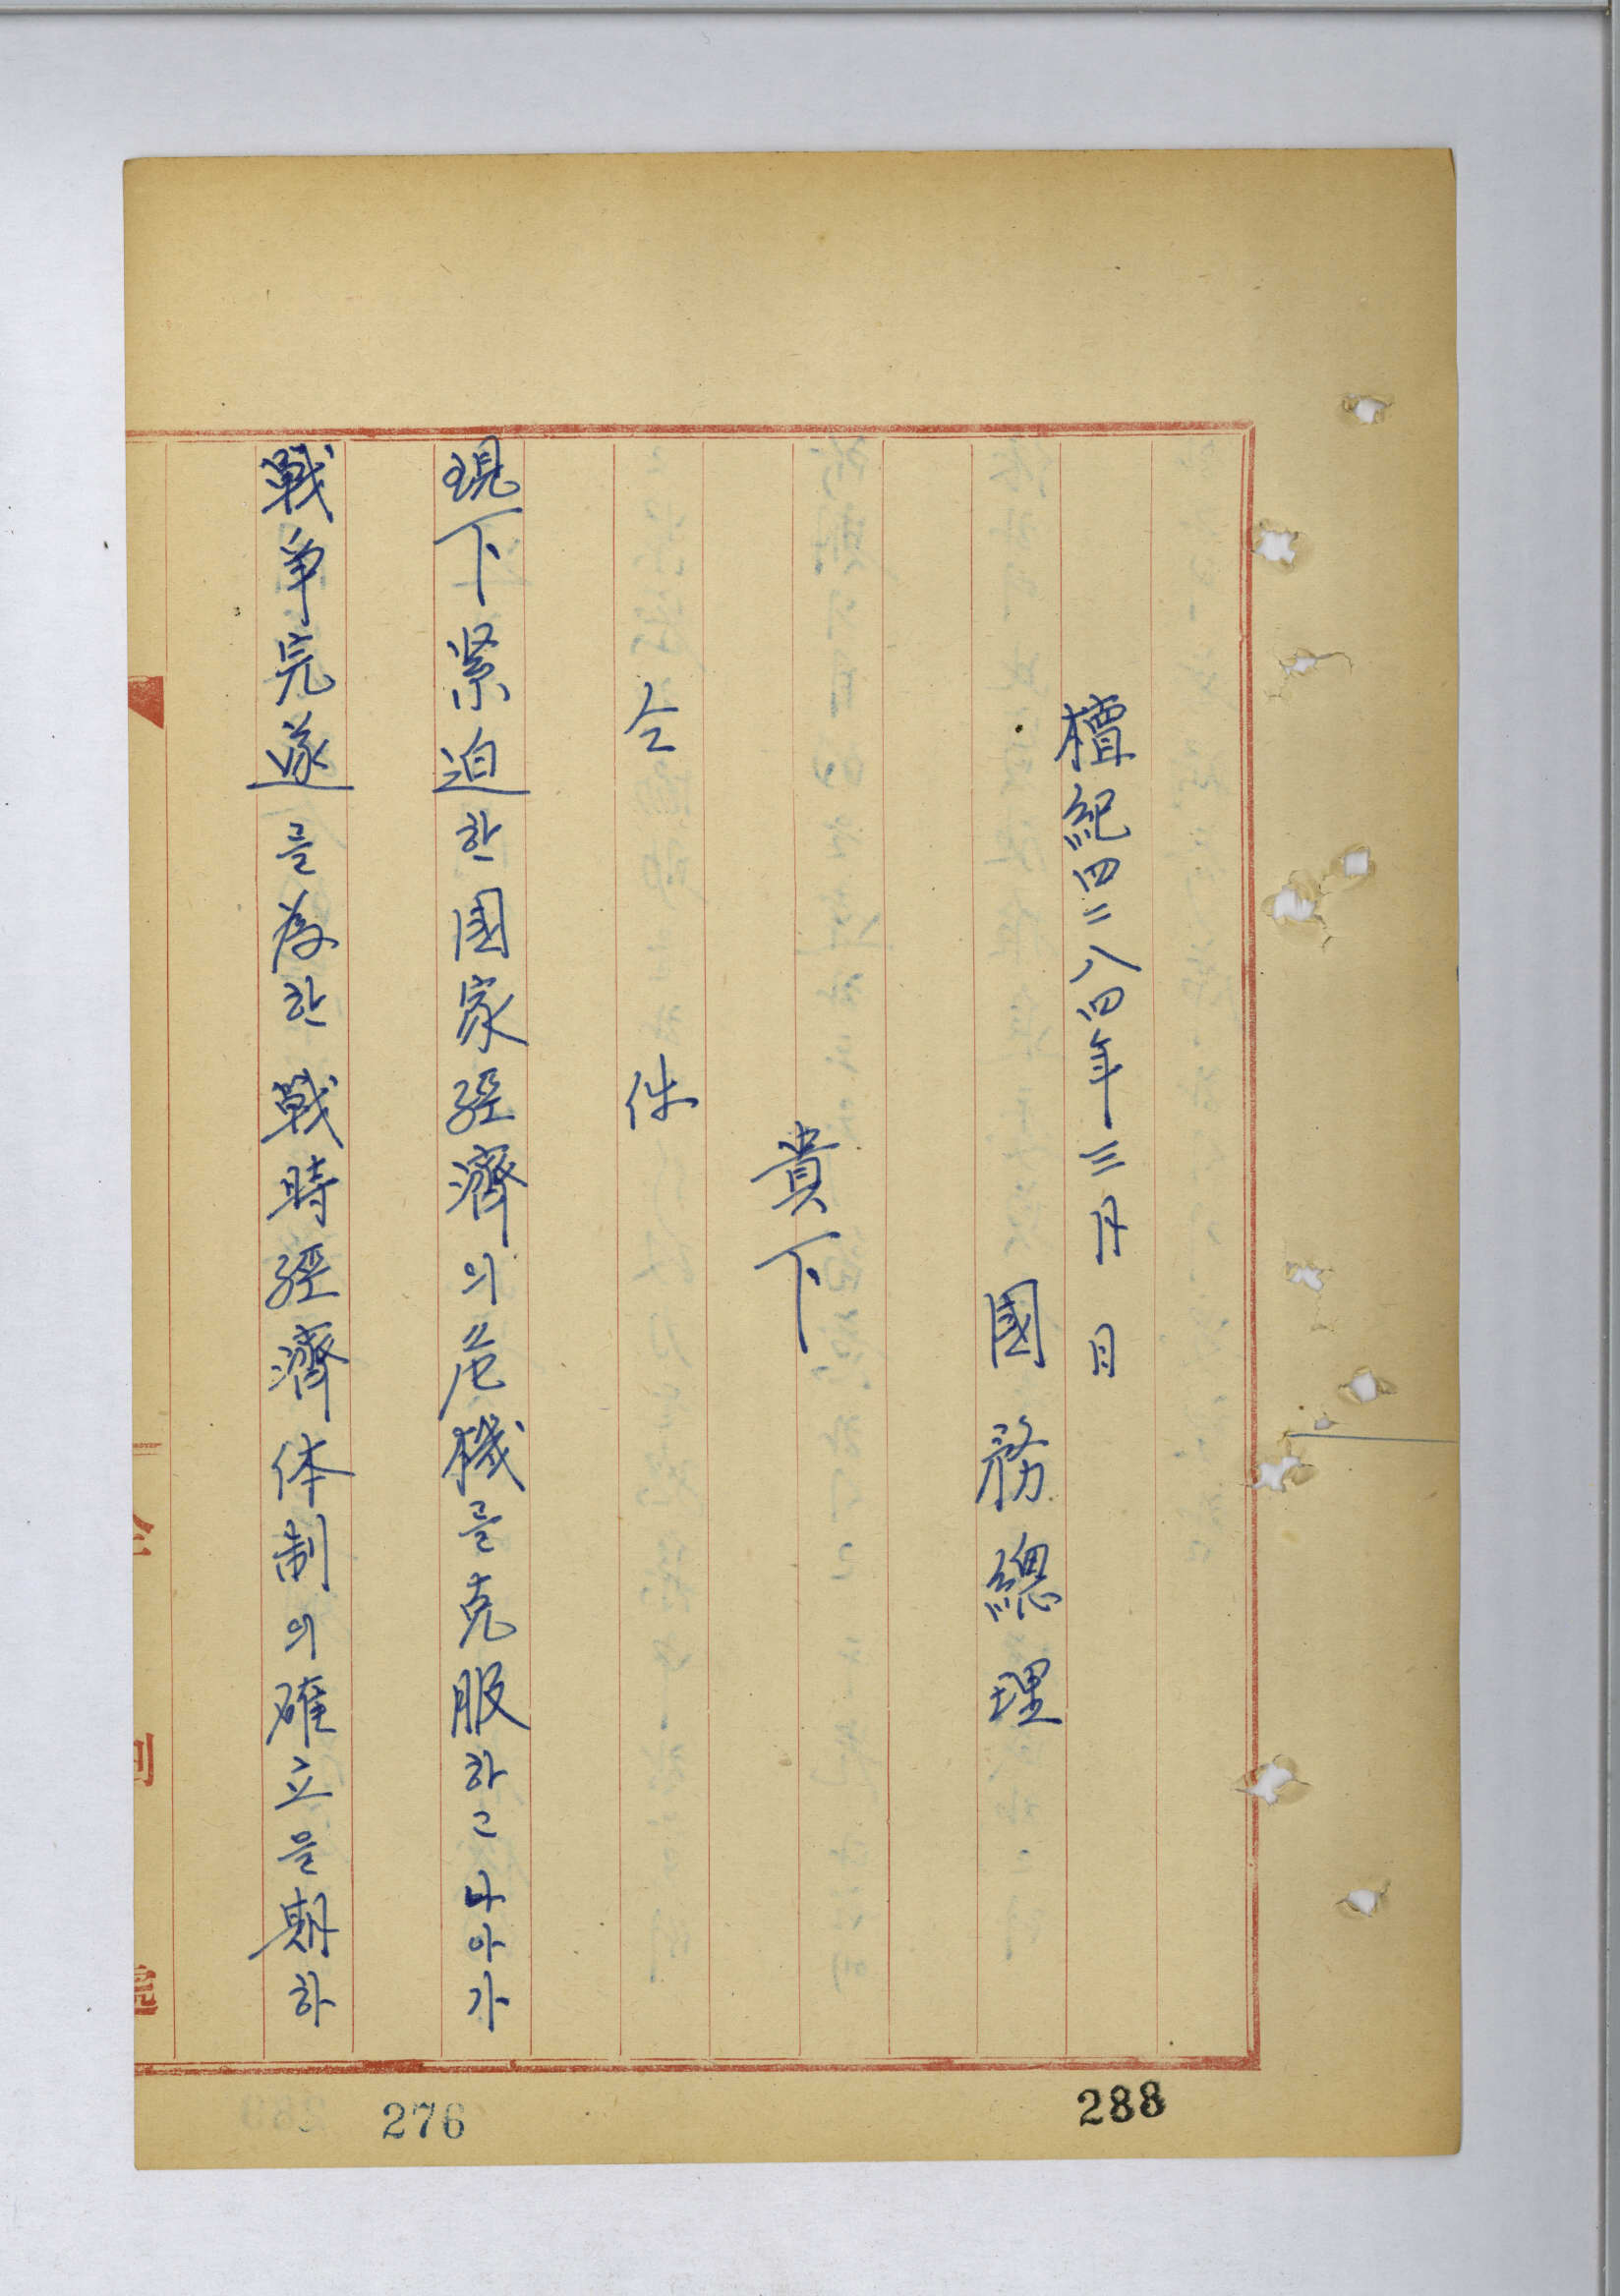 檀紀四二八四年三月 日
國務總理
貴下
仝 件
現下緊迫한國家經濟의危機를克服하고나아가
戰爭完遂를爲한戰時經濟体制의確立을期하
288
276